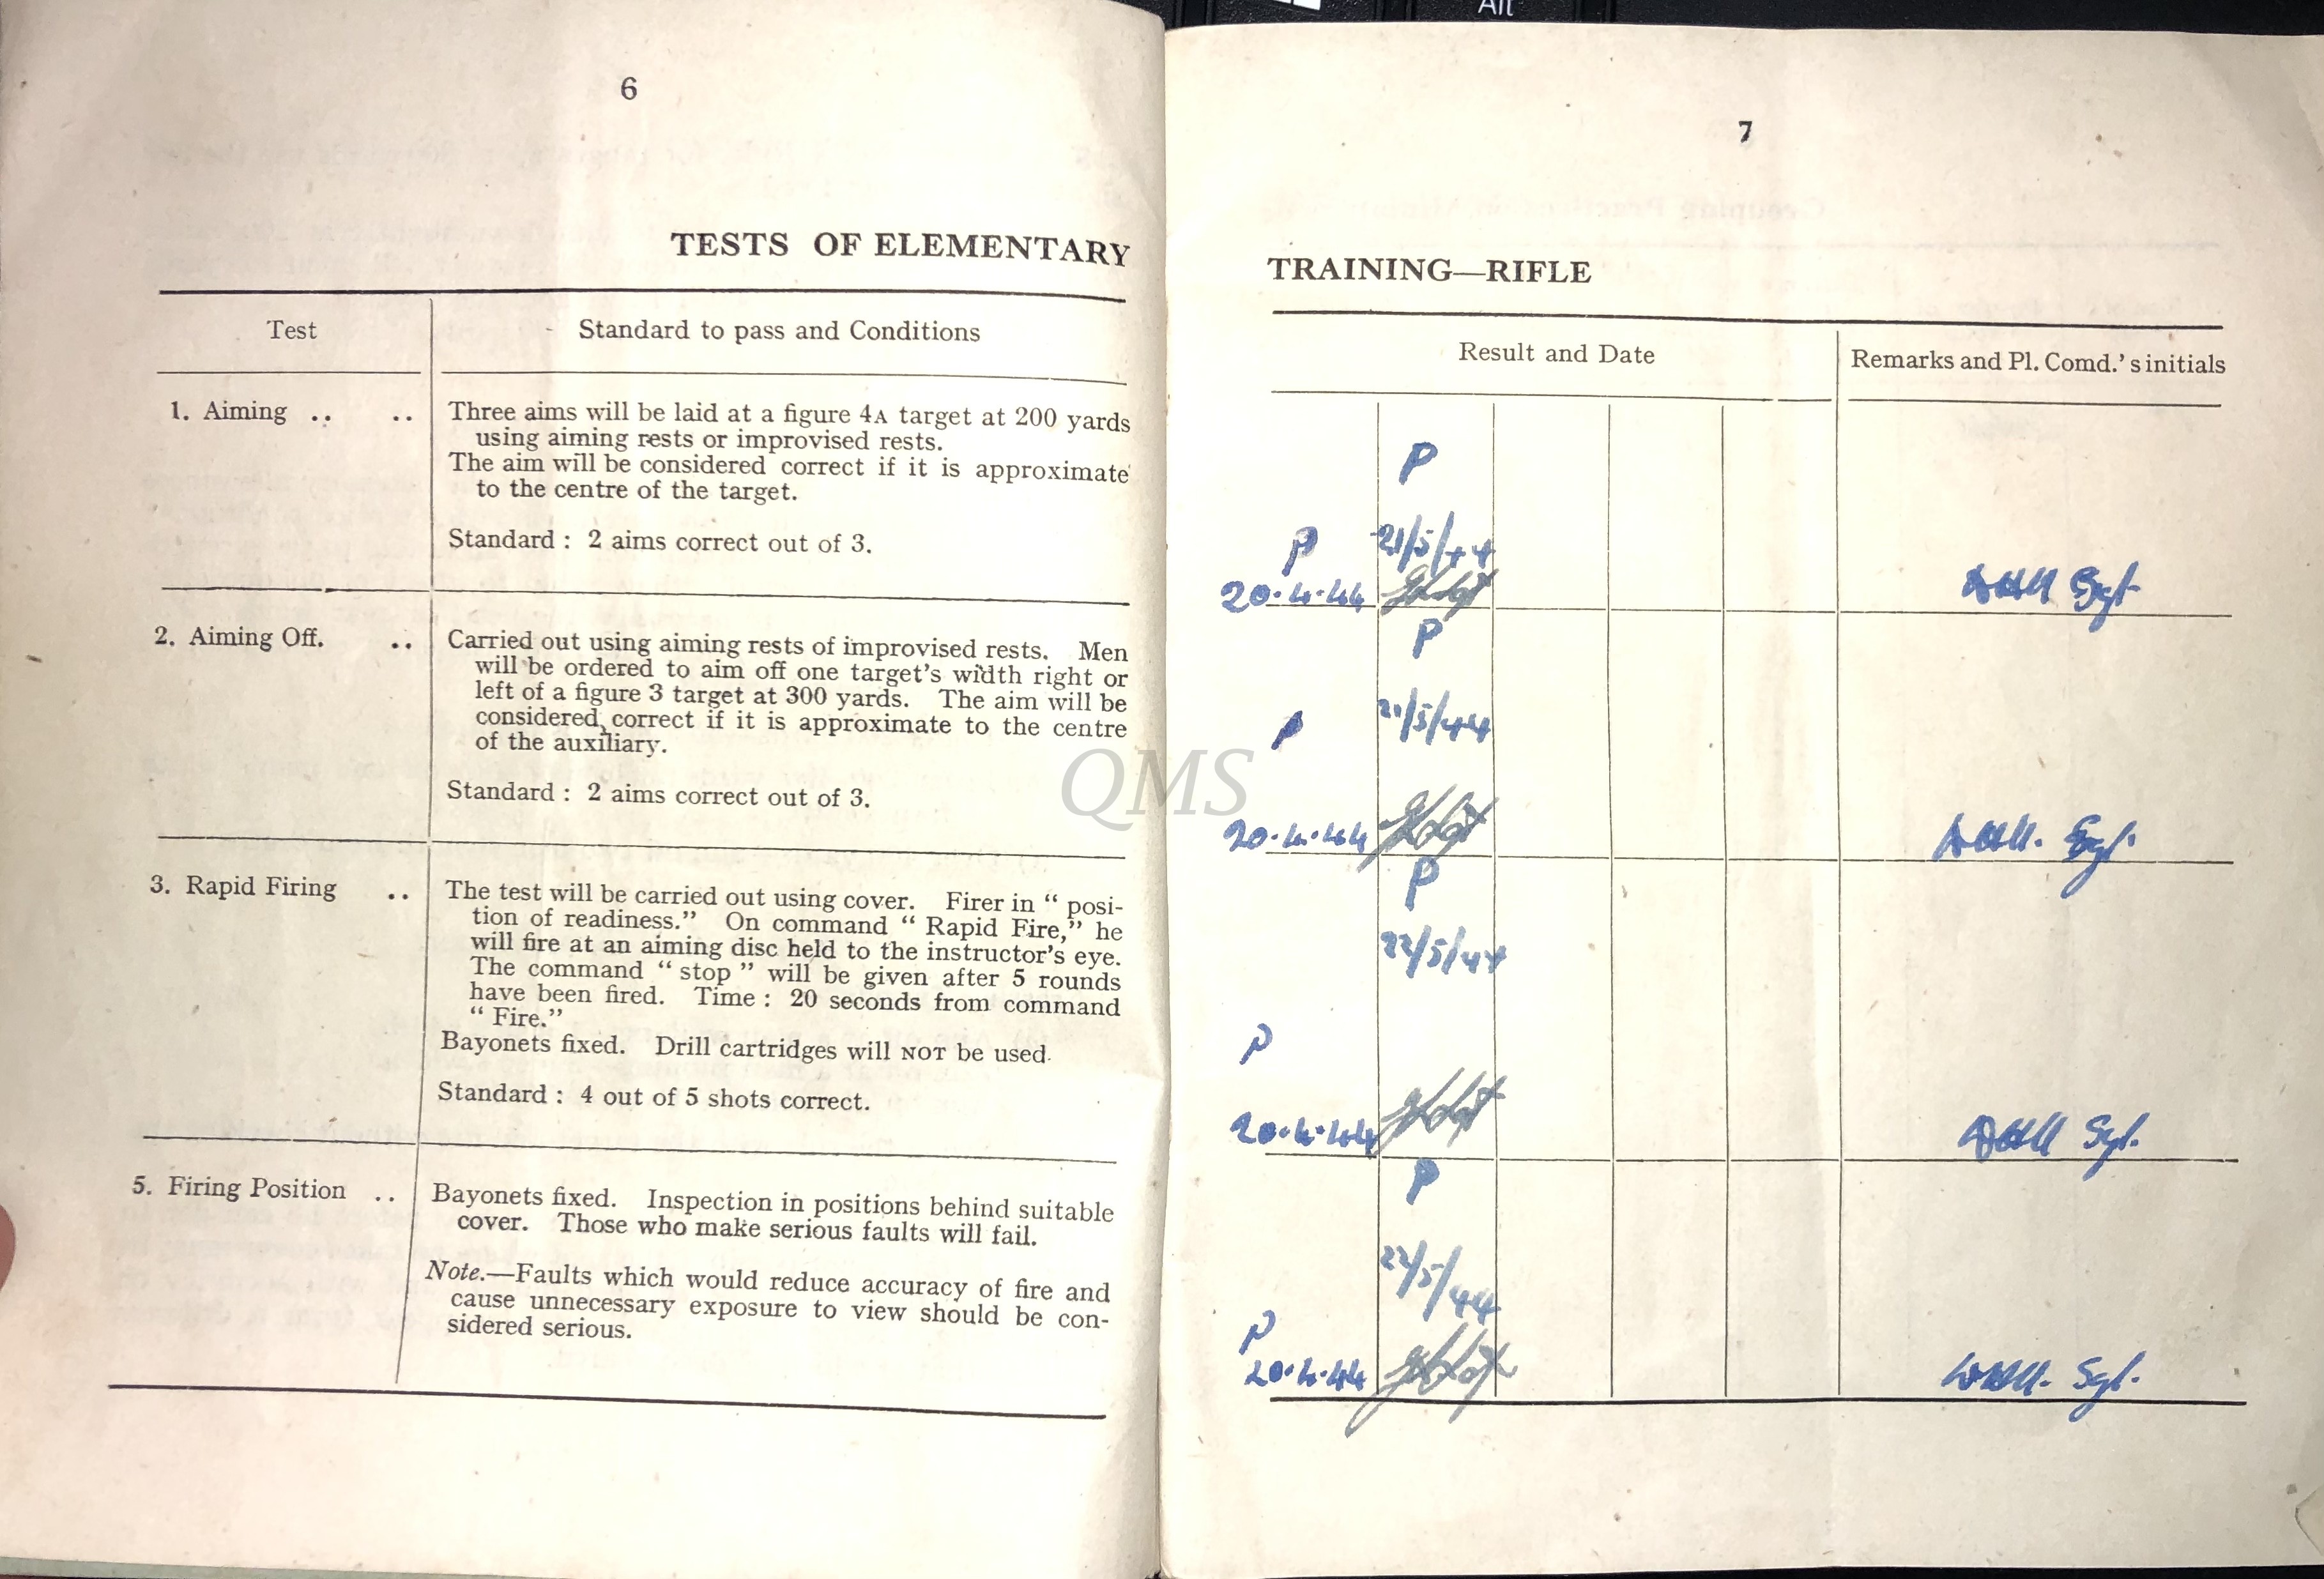 Alt
6
TESTS OF ELEMENTARY
Test
Standard to pass and Conditions
1. Aiming .. ..
Three aims will be laid at a figure 4A target at 200 yards
using aiming rests or improvised rests.
The aim will be considered correct if it is approximate
to the centre of the target.
Standard : 2 aims correct out of 3.
2. Aiming Off. ..
Carried out using aiming rests of improvised rests. Men
will be ordered to aim off one target's width right or
left of a figure 3 target at 300 yards. The aim will be
considered correct if it is approximate to the centre
of the auxiliary.
Standard : 2 aims correct out of 3.
3. Rapid Firing ..
The test will be carried out using cover. Firer in “ posi-
tion of readiness.” On command “ Rapid Fire,” he
will fire at an aiming disc held to the instructor's eye.
The command “ stop ” will be given after 5 rounds
have been fired. Time : 20 seconds from command
“ Fire.”
Bayonets fixed. Drill cartridges will NOT be used.
Standard : 4 out of 5 shots correct.
5. Firing Position ..
Bayonets fixed. Inspection in positions behind suitable
cover. Those who make serious faults will fail.
Note.—Faults which would reduce accuracy of fire and
cause unnecessary exposure to view should be con-
sidered serious.
QMS
7
TRAINING—RIFLE
Result and Date
Remarks and Pl. Comd.'s initials
P
P
21/5/44
20.4.44
Sgt.
P
P
21/5/44
20.4.44
Sgt.
P
22/5/44
P
20.4.44
Sgt.
P
22/5/44
P
20.4.44
Sgt.